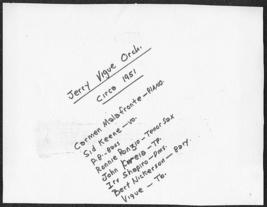 Jerry Vigue Orch.
Circa 1951
Carmen Malafronte - PIANO.
Sid Keene - vo.
P.B. - Bass
Ronnie Ronzio - Tenor Sax
John - TP.
Irv Shapiro - Dms.
Bert Nickerson - Bary.
Vigue - Tb.